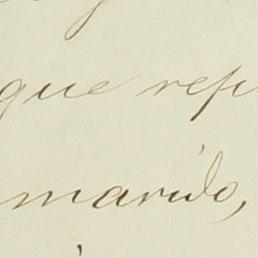 que rep
marido,